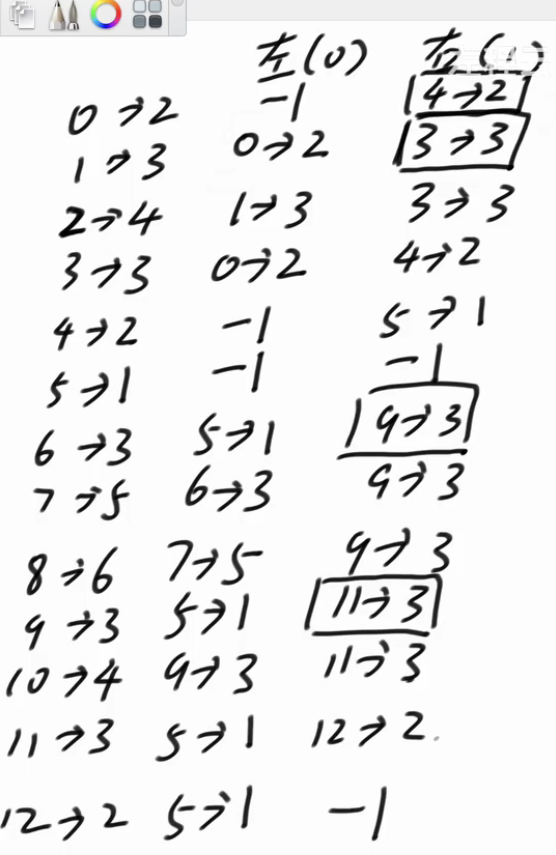 左(0) 右(<)
0→2 -1 4→2
1→3 0→2 3→3
2→4 1→3 3→3
3→3 0→2 4→2
4→2 -1 5→1
5→1 -1 -1
6→3 5→1 9→3
7→5 6→3 9→3
8→6 7→5 9→3
9→3 5→1 11→3
10→4 9→3 11→3
11→3 5→1 12→2
12→2 5→1 -1